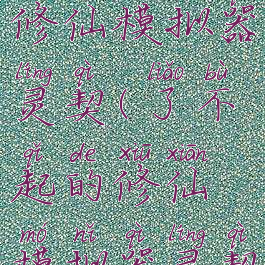 修仙模拟器
líng qì liǎo bù
灵契(了不
qǐ de xiū xiān
起的修仙
mó nǐ qì líng qì
模拟器灵契